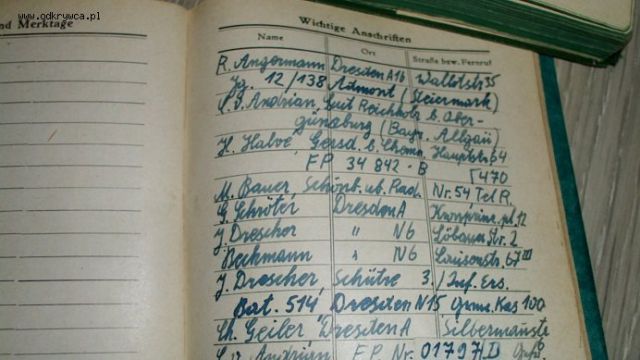 www.odkrywca.pl
nd Merktage
Wichtige Anschriften
Name Ort Straße bzw. Fernruf
R. Angermann Dresden A16 Wallotstr 35
Jg. 12/138 Admont (Steiermark)
v. Andrian, Gut Reichholz b. Ober-
günzburg (Bayr. Allgäu
H. Halve, Gersd. b. Chemn. Hauptstr 64
FP 34 842 - B [470
M. Bauer Schönb. üb. Rad. Nr. 54 Tel R.
G. Schröter Dresden A Kronprinz. pl. 12
J. Drescher " N6 Löbauer Str. 2
Beckmann " N6 67 III
J. Drescher, Schütze 3. / Inf. Ers.
Bat. 514, Dresden N15 Gren. Kas 100
Ch. Geiler, Dresden A Silbermannstr
v. Andrian FP Nr. 01797/D